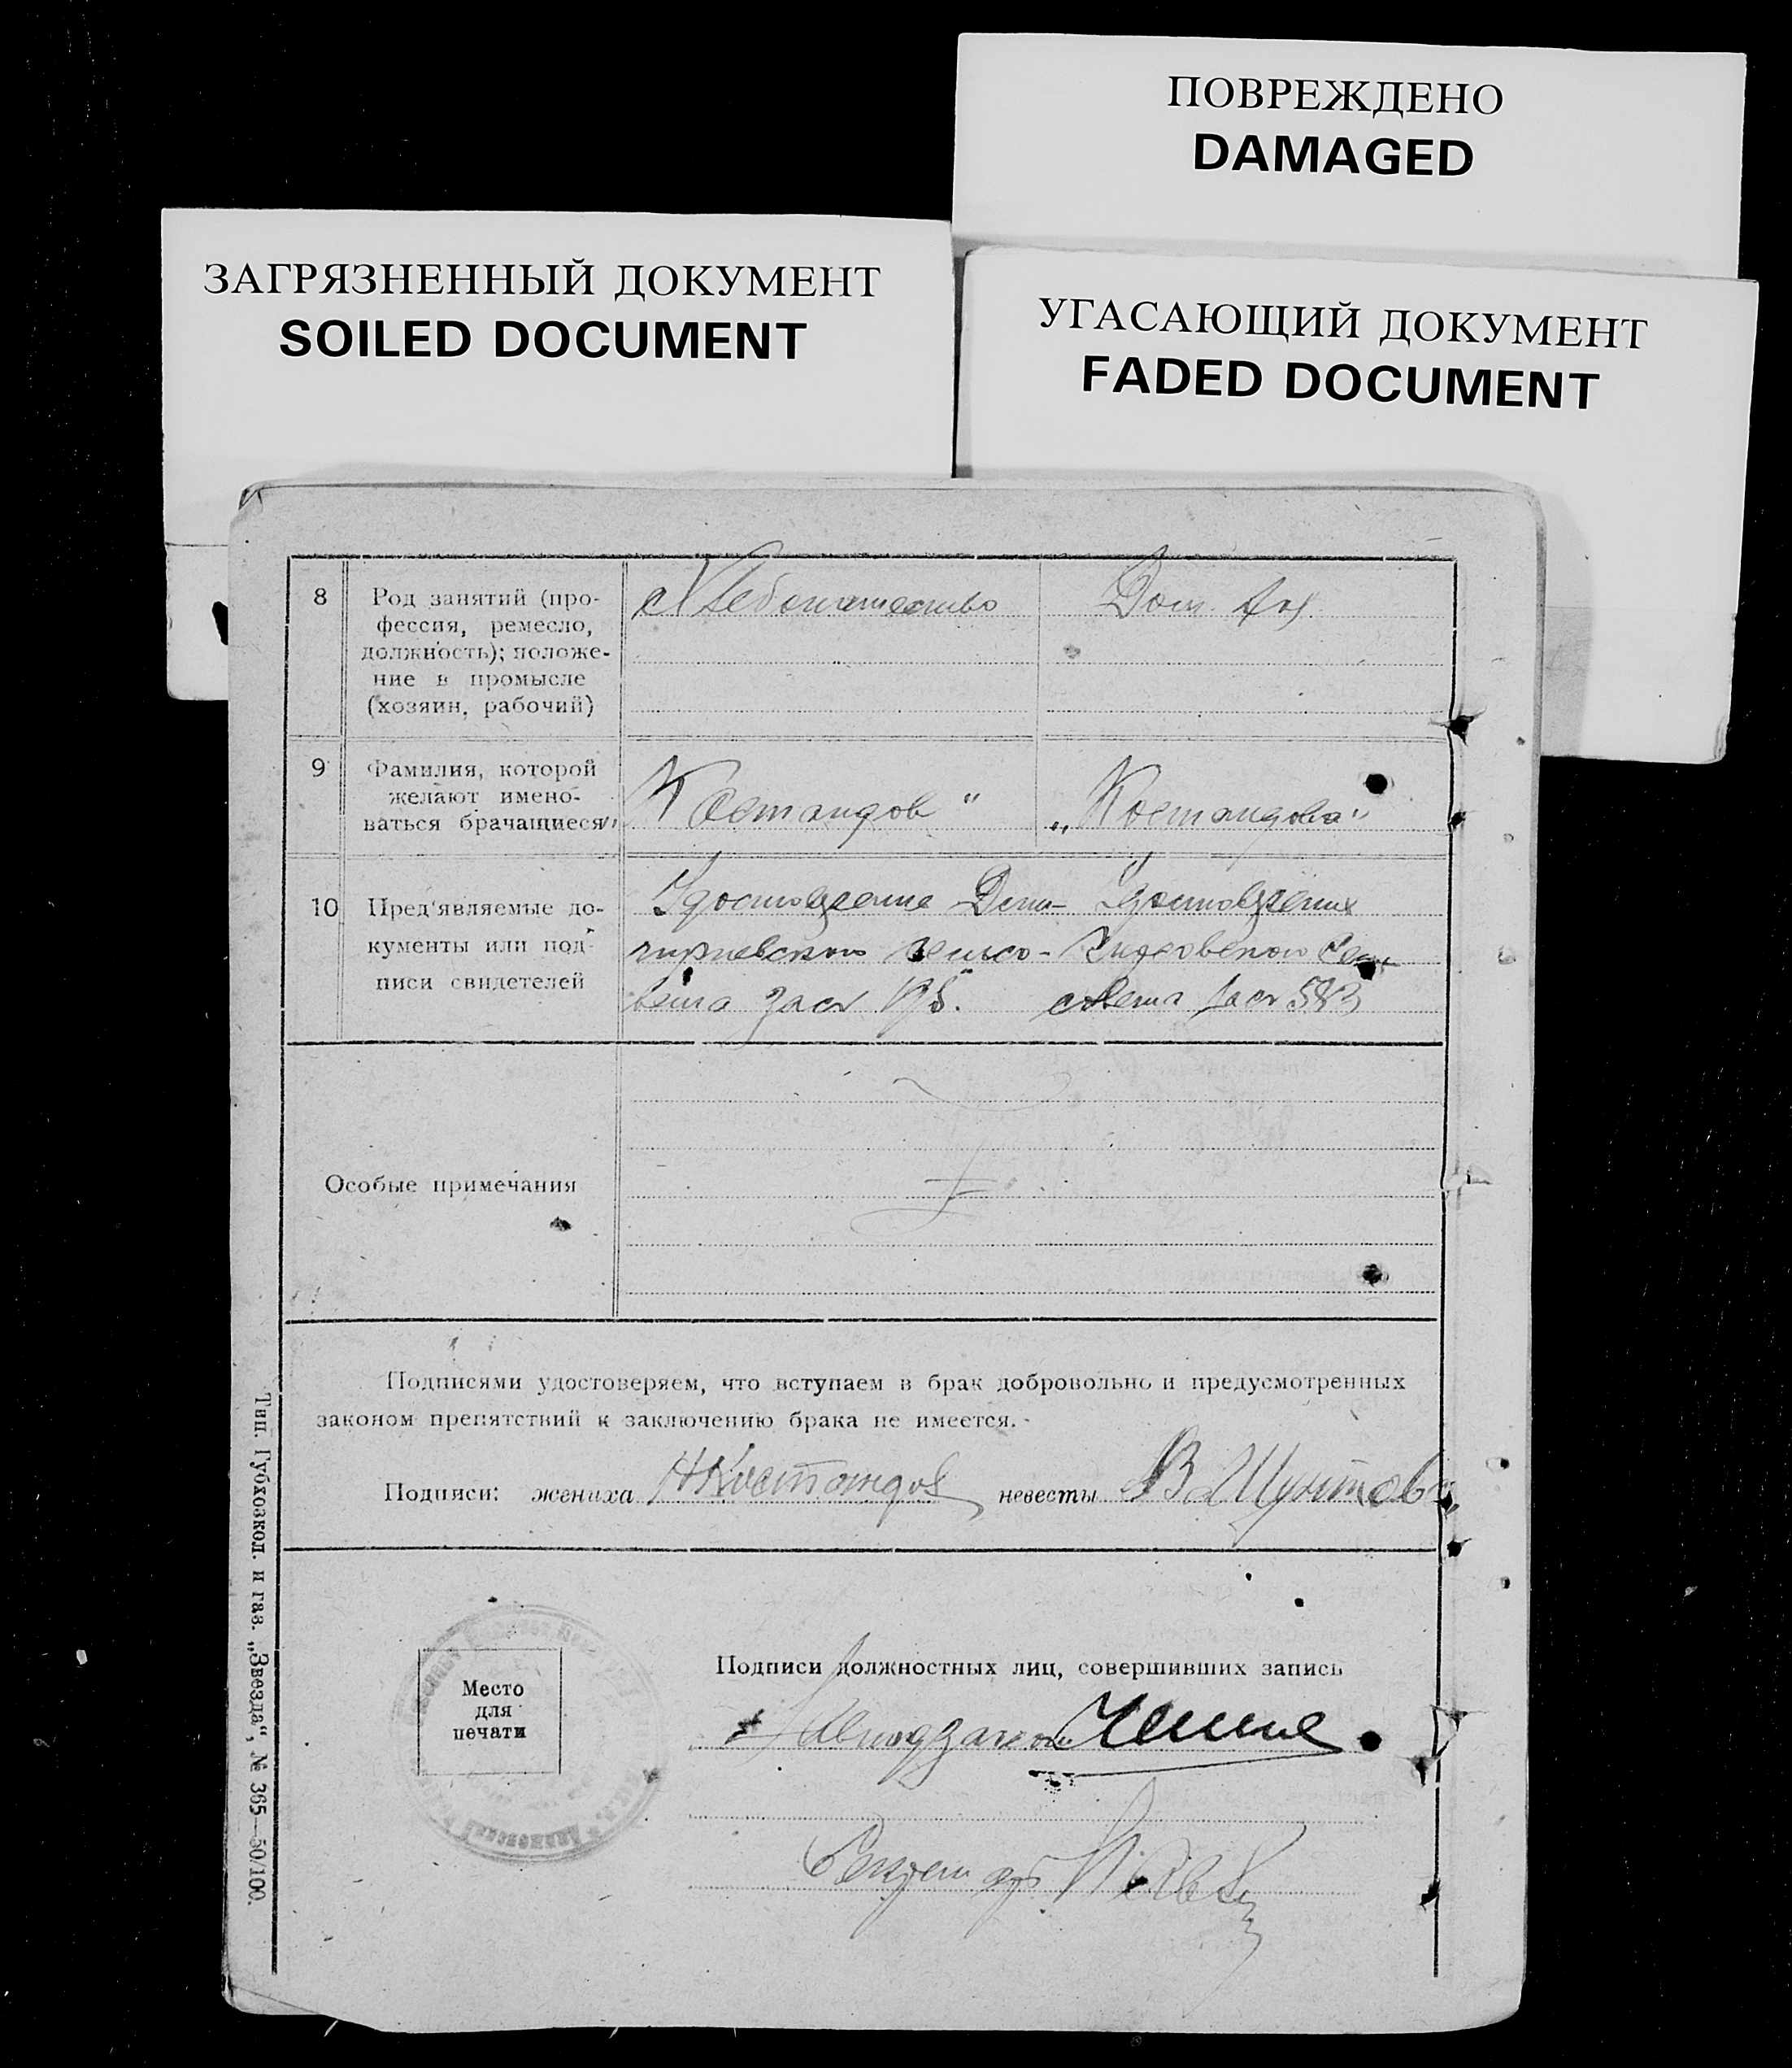 ПОВРЕЖДЕНО
DAMAGED
ЗАГРЯЗНЕННЫЙ ДОКУМЕНТ
SOILED DOCUMENT
УГАСАЮЩИЙ ДОКУМЕНТ
FADED DOCUMENT
8
Род занятий (про-
фессия, ремесло,
должность); положе-
ние в промысле
(хозяин, рабочий)
Хлебопашество
Дом. хоз.
9
Фамилия, которой
желают имено-
ваться брачащиеся
„Костандов“
„Костандова“
10
Пред'являемые до-
кументы или под-
писи свидетелей
Удостоверение
Удостоверение
Особые примечания
Подписями удостоверяем, что вступаем в брак добровольно и предусмотренных
законом препятствий к заключению брака не имеется.
Подписи: жениха НКостандов невесты В Шунтова
Место
для
печати
Подписи должностных лиц, совершивших запись
Тип. Губховкол. и газ. „Звезда“, № 365—50/100.